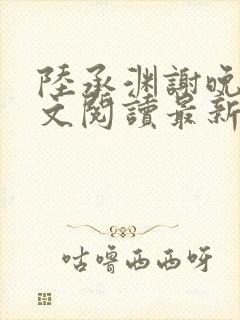 陸承渊謝晚
文閱讀最新
咕嚕西西呀